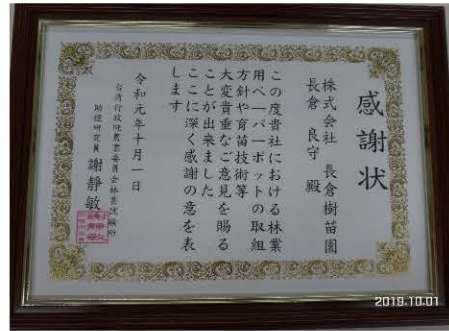 感謝状
株式会社 長倉樹苗園
長倉 良守 殿
この度貴社における林業
用ペーパーポットの取組
方針や育苗技術等
大変貴重なご意見を賜る
ことが出来ました
ここに深く感謝の意を表
します
令和元年十月一日
台湾行政院農業委員会林業試験所
助理研究員 謝靜敏
2019.10.01